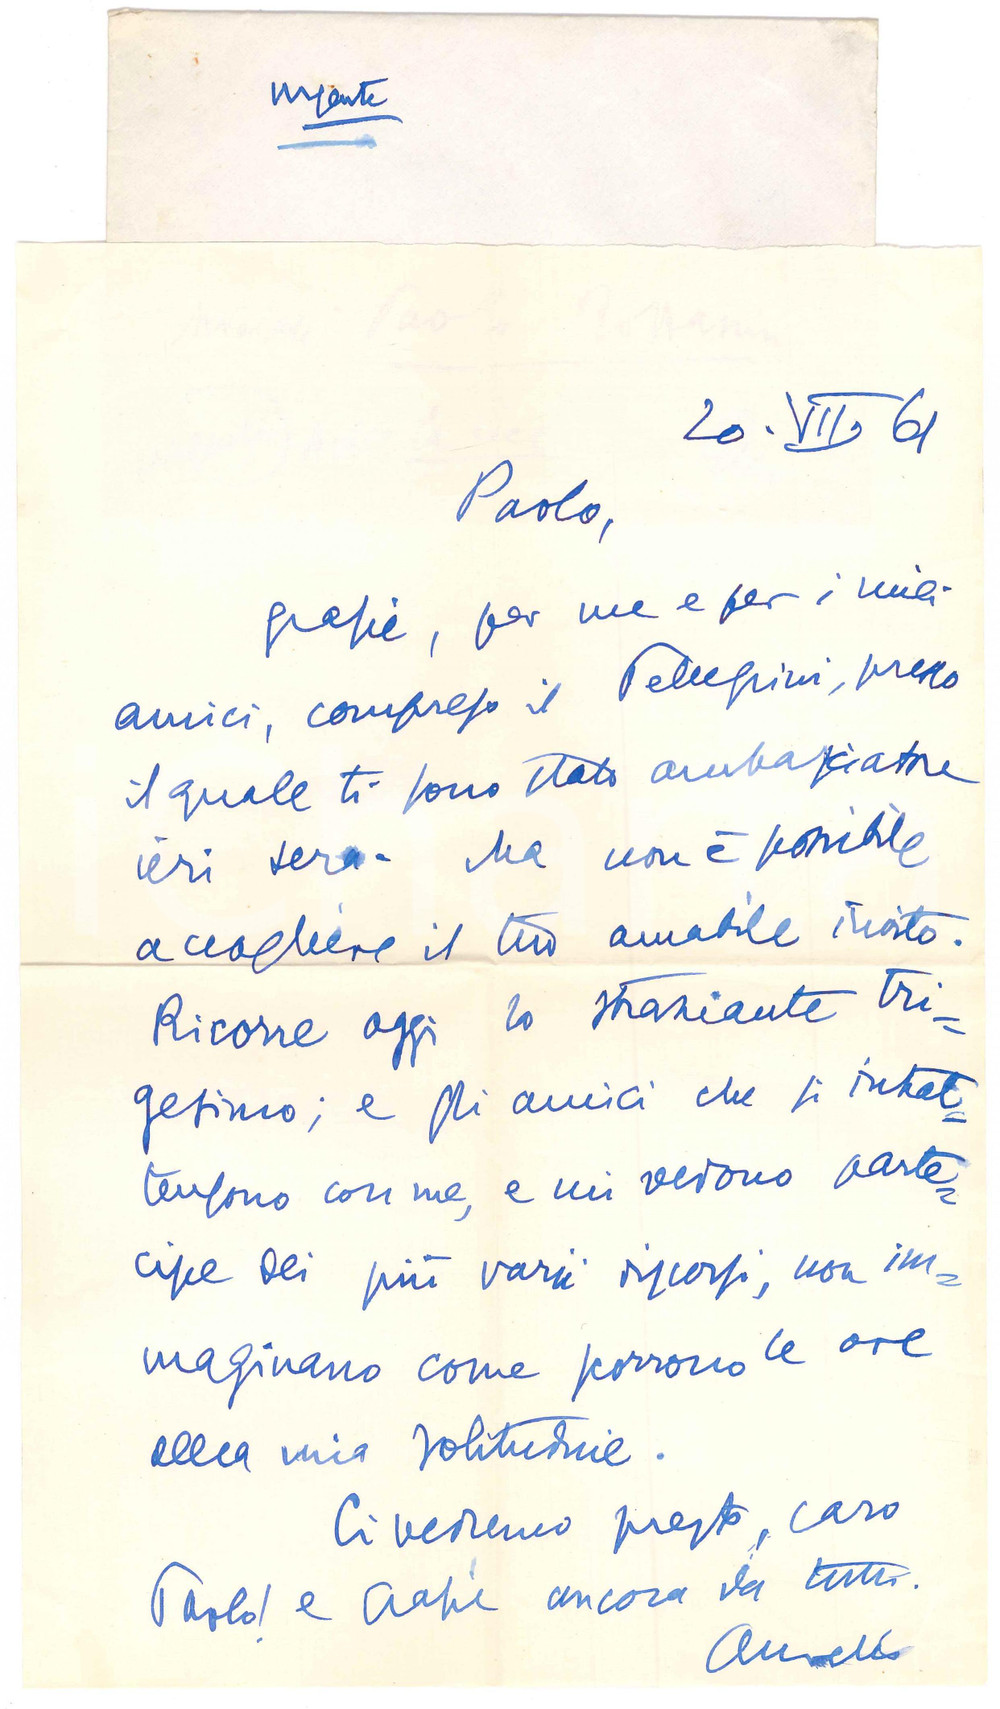 urgente
20. VII. 61
Paolo,
grazie, per me e per i miei
amici, compreso il Pellegrini, presso
il quale ti sono stato ambasciatore
ieri sera. Ma non è possibile
accogliere il tuo amabile invito.
Ricorre oggi lo straziante tri-
gesimo; e gli amici che si intrat-
tengono con me, e mi vedono parte-
cipe dei più varii discorsi, non im-
maginano come scorrono le ore
della mia solitudine.
Ci vedremo presto, caro
Paolo! e grazie ancora da tutti.
Aurelio